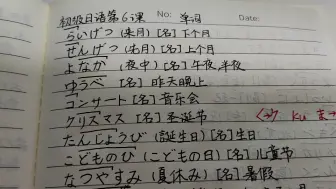 初级日语第6课 No: 单词 Date:
らいげつ (来月) [名] 下个月
せんげつ (先月) [名] 上个月
よなか (夜中) [名] 午夜,半夜
ゆうべ [名] 昨天晚上
コンサート [名] 音乐会
クリスマス [名] 圣诞节
たんじょうび (誕生日) [名] 生日
こどものひ (こどもの日) [名] 儿童节
なつやすみ (夏休み) [名] 暑假